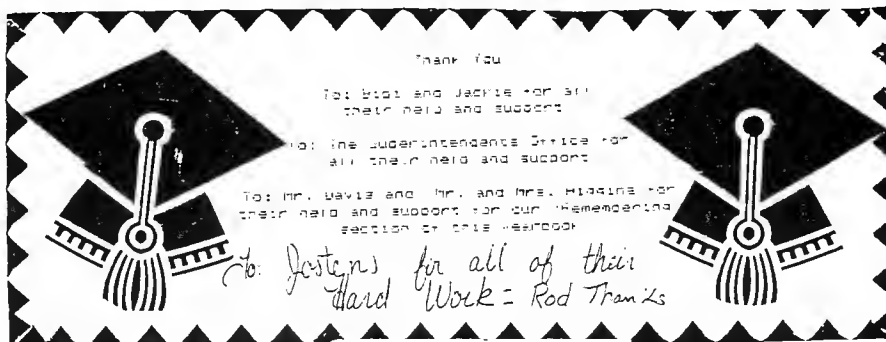 Thank You
To: and Jackie for all
their help and support
To: The Superintendents Office for
all their help and support
To: Mr. Davis and Mr. and Mrs. Higgins for
their help and support for our "Remembering
section of this yearbook
To: Jostens for all of their
Hard Work = Rod Thanks